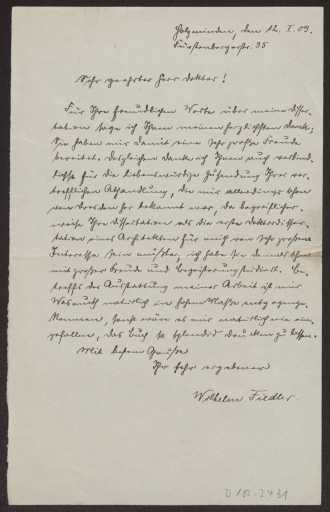 Holzminden, den 12. I. 09.
Fürstenbergerstr. 35
Sehr geehrter Herr Doktor!
Für Ihre freundlichen Worte über meine Disser-
tation sage ich Ihnen meinen herzlichsten Dank;
Sie haben mir damit eine sehr große Freude
bereitet. Desgleichen danke ich Ihnen auch verbind-
lichst für die liebenswürdige Zusendung Ihrer vor-
trefflichen Abhandlung, die mir allerdings schon
von Dresden her bekannt war, da begreiflicher-
weise Ihre Dissertation als die erste Doktordisser-
tation eines Architekten für mich von sehr großem
Interesse sein mußte, ich habe sie damals schon
mit großer Freude und Begeisterung studiert. Be-
treffs der Ausstattung meiner Arbeit ist mir
Wasmuth natürlich in hohem Maße entgegenge-
kommen, sonst wäre es mir natürlich nie ein-
gefallen, das Buch so splendid drucken zu lassen.
Mit bestem Gruße
Ihr sehr ergebener
Wilhelm Fiedler.